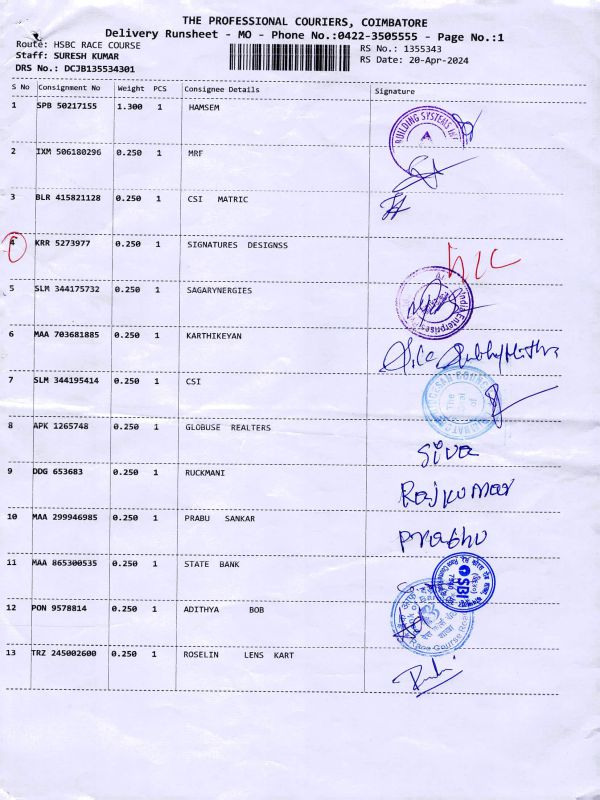 THE PROFESSIONAL COURIERS, COIMBATORE
Delivery Runsheet - MO - Phone No.:0422-3505555 - Page No.:1
Route: HSBC RACE COURSE RS No.: 1355343
Staff: SURESH KUMAR RS Date: 20-Apr-2024
DRS No.: DCJB135534301
S No Consignment No Weight PCS Consignee Details Signature
1 SPB 50217155 1.300 1 HAMSEM
BUILDING SYSTEMS
2 IXM 506180296 0.250 1 MRF
3 BLR 415821128 0.250 1 CSI MATRIC
4 KRR 5273977 0.250 1 SIGNATURES DESIGNSS
5 SLM 344175732 0.250 1 SAGARYNERGIES
Enterprises
6 MAA 703681885 0.250 1 KARTHIKEYAN
7 SLM 344195414 0.250 1 CSI
8 APK 1265748 0.250 1 GLOBUSE REALTERS
Siva
9 DDG 653683 0.250 1 RUCKMANI
Rajkumar
10 MAA 299946985 0.250 1 PRABU SANKAR
Prabhu
11 MAA 865300535 0.250 1 STATE BANK
SBI
12 PON 9578814 0.250 1 ADITHYA BOB
Race Course Road
13 TRZ 245002600 0.250 1 ROSELIN LENS KART